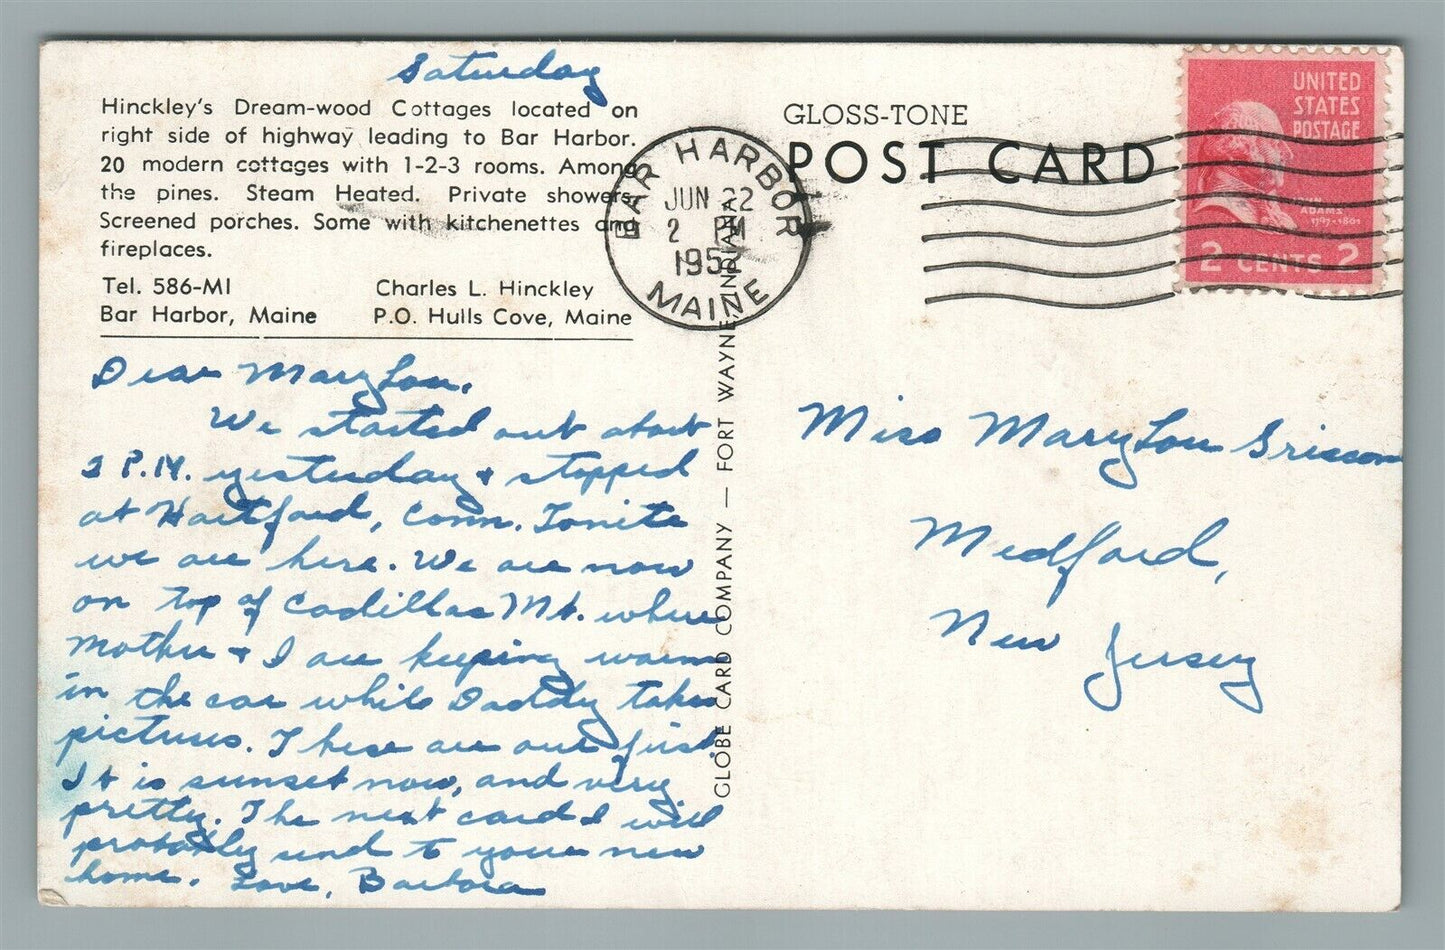 Saturday
Hinckley's Dream-wood Cottages located on
right side of highway leading to Bar Harbor.
20 modern cottages with 1-2-3 rooms. Among
the pines. Steam Heated. Private showers.
Screened porches. Some with kitchenettes and
fireplaces.
Tel. 586-MI
Bar Harbor, Maine
Charles L. Hinckley
P.O. Hulls Cove, Maine
Dear Mary Lou,
We started out about
2 P.M. yesterday & stopped
at Hartford, Conn. Tonite
we are here. We are now
on top of Cadillac Mt. where
Mother & I are keeping warm
in the car while Daddy takes
pictures. These are our first.
It is sunset now, and very
pretty. The next card I will
probably send to your new
home. Love, Barbara
GLOBE CARD COMPANY — FORT WAYNE, INDIANA
BAR HARBOR
JUN 22
2 PM
1952
MAINE
GLOSS-TONE
POST CARD
UNITED
STATES
POSTAGE
ADAMS
1797-1801
2 CENTS 2
Miss Mary Lou Grissom
Medford,
New Jersey